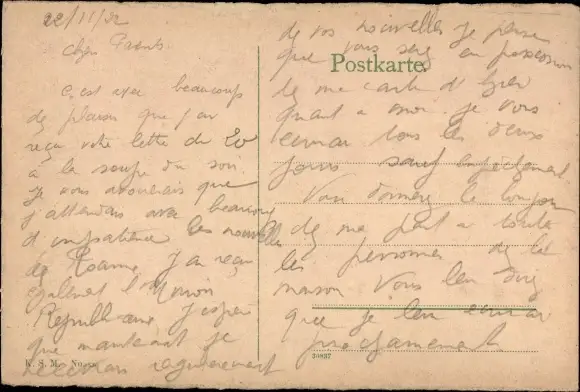 22/11/
Chers Parents
C'est avec beaucoup
de plaisir que j'ai
reçu votre lettre du 20
à la soupe du soir.
Je vous avouerais que
j'attendais avec beaucoup
d'impatience les nouvelles
de Roanne, J'ai reçu
également l'Union
Républicaine, j'espère
que maintenant je
recevrai régulièrement
K. S. M. No
de vos nouvelles je pense
que vous serez en possession
Postkarte.
de ma carte d'hier
quant a moi je vous
écrirai tous les deux
jours sauf empêchement
Vous donnerez le bonjour
de ma part a toutes
les personnes de la
maison Vous leur direz
que je leur écrirai
prochainement
30837